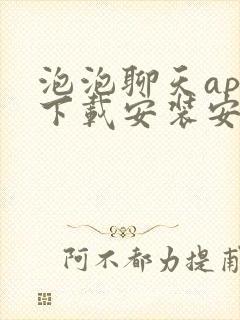 泡泡聊天ap
下载安装安
阿不都力提甫